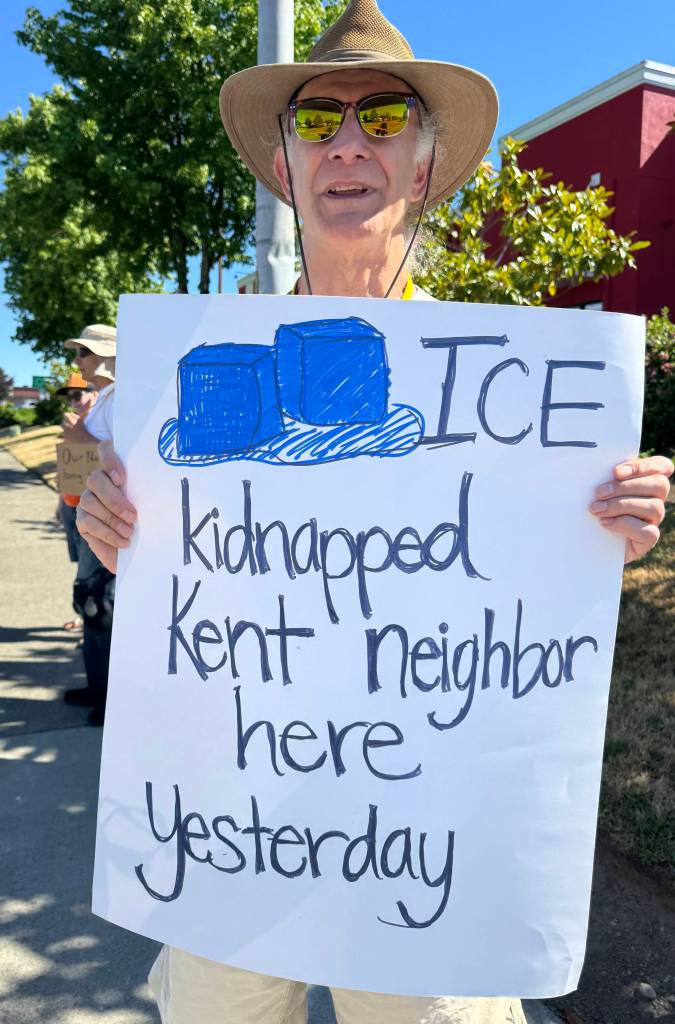 ICE
kidnapped
Kent neighbor
here
yesterday
Our